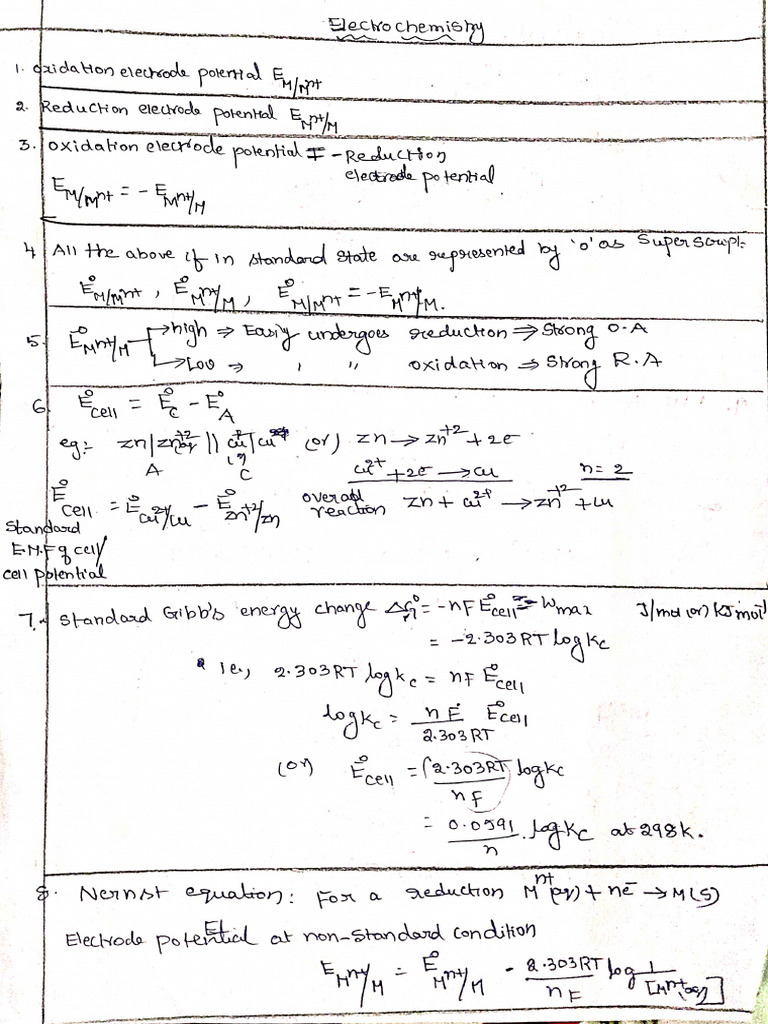 Electrochemistry
1. Oxidation electrode potential E M/Mⁿ⁺
2. Reduction electrode potential E Mⁿ⁺/M
3. Oxidation electrode potential = - Reduction
electrode potential
E M/Mⁿ⁺ = - E Mⁿ⁺/M
4 All the above if in standard state are represented by 'o' as Superscript.
E° M/Mⁿ⁺ , E° Mⁿ⁺/M , E° M/Mⁿ⁺ = - E Mⁿ⁺/M.
5. E° Mⁿ⁺/M → high ⇒ Easily undergoes reduction ⇒ Strong O.A
→ Low ⇒ ' '' oxidation ⇒ Strong R.A
6 E° cell = E° C - E° A
eg:- Zn/Zn⁺² || Cu⁺²/Cu (or) Zn → Zn⁺² + 2e⁻
A C Cu²⁺ + 2e⁻ → Cu n = 2
E° cell = E° Cu²⁺/Cu - E° Zn⁺²/Zn overall reaction Zn + Cu²⁺ → Zn⁺² + Cu
Standard
E.M.F of cell/
cell potential
7. Standard Gibb's energy change ΔrG° = -nFE° cell = Wmax J/mol (or) KJ mol⁻¹
= -2.303RT log Kc
ie, 2.303RT log Kc = nF E° cell
log Kc = nF E° cell / 2.303RT
(or) E° cell = (2.303RT / nF) log Kc
= 0.0591 / n . log Kc at 298K.
8. Nernst equation: For a reduction Mⁿ⁺(aq) + ne⁻ → M(s)
Electrode potential at non-standard condition
E Mⁿ⁺/M = E° Mⁿ⁺/M - 2.303RT / nF log 1 / [Mⁿ⁺(aq)]